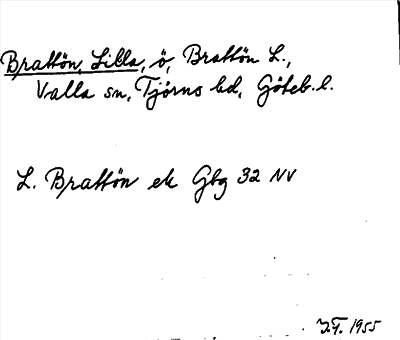 Brattön, Lilla, ö, Brattön L.,
Valla sn, Tjörns hd, Göteb. l.
L. Brattön ek Gbg 32 NV
J.F. 1955